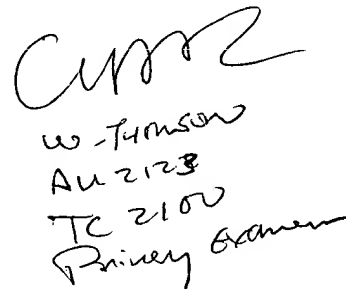 W-Thomson
AU 2123
TC 2100
Primary Examiner